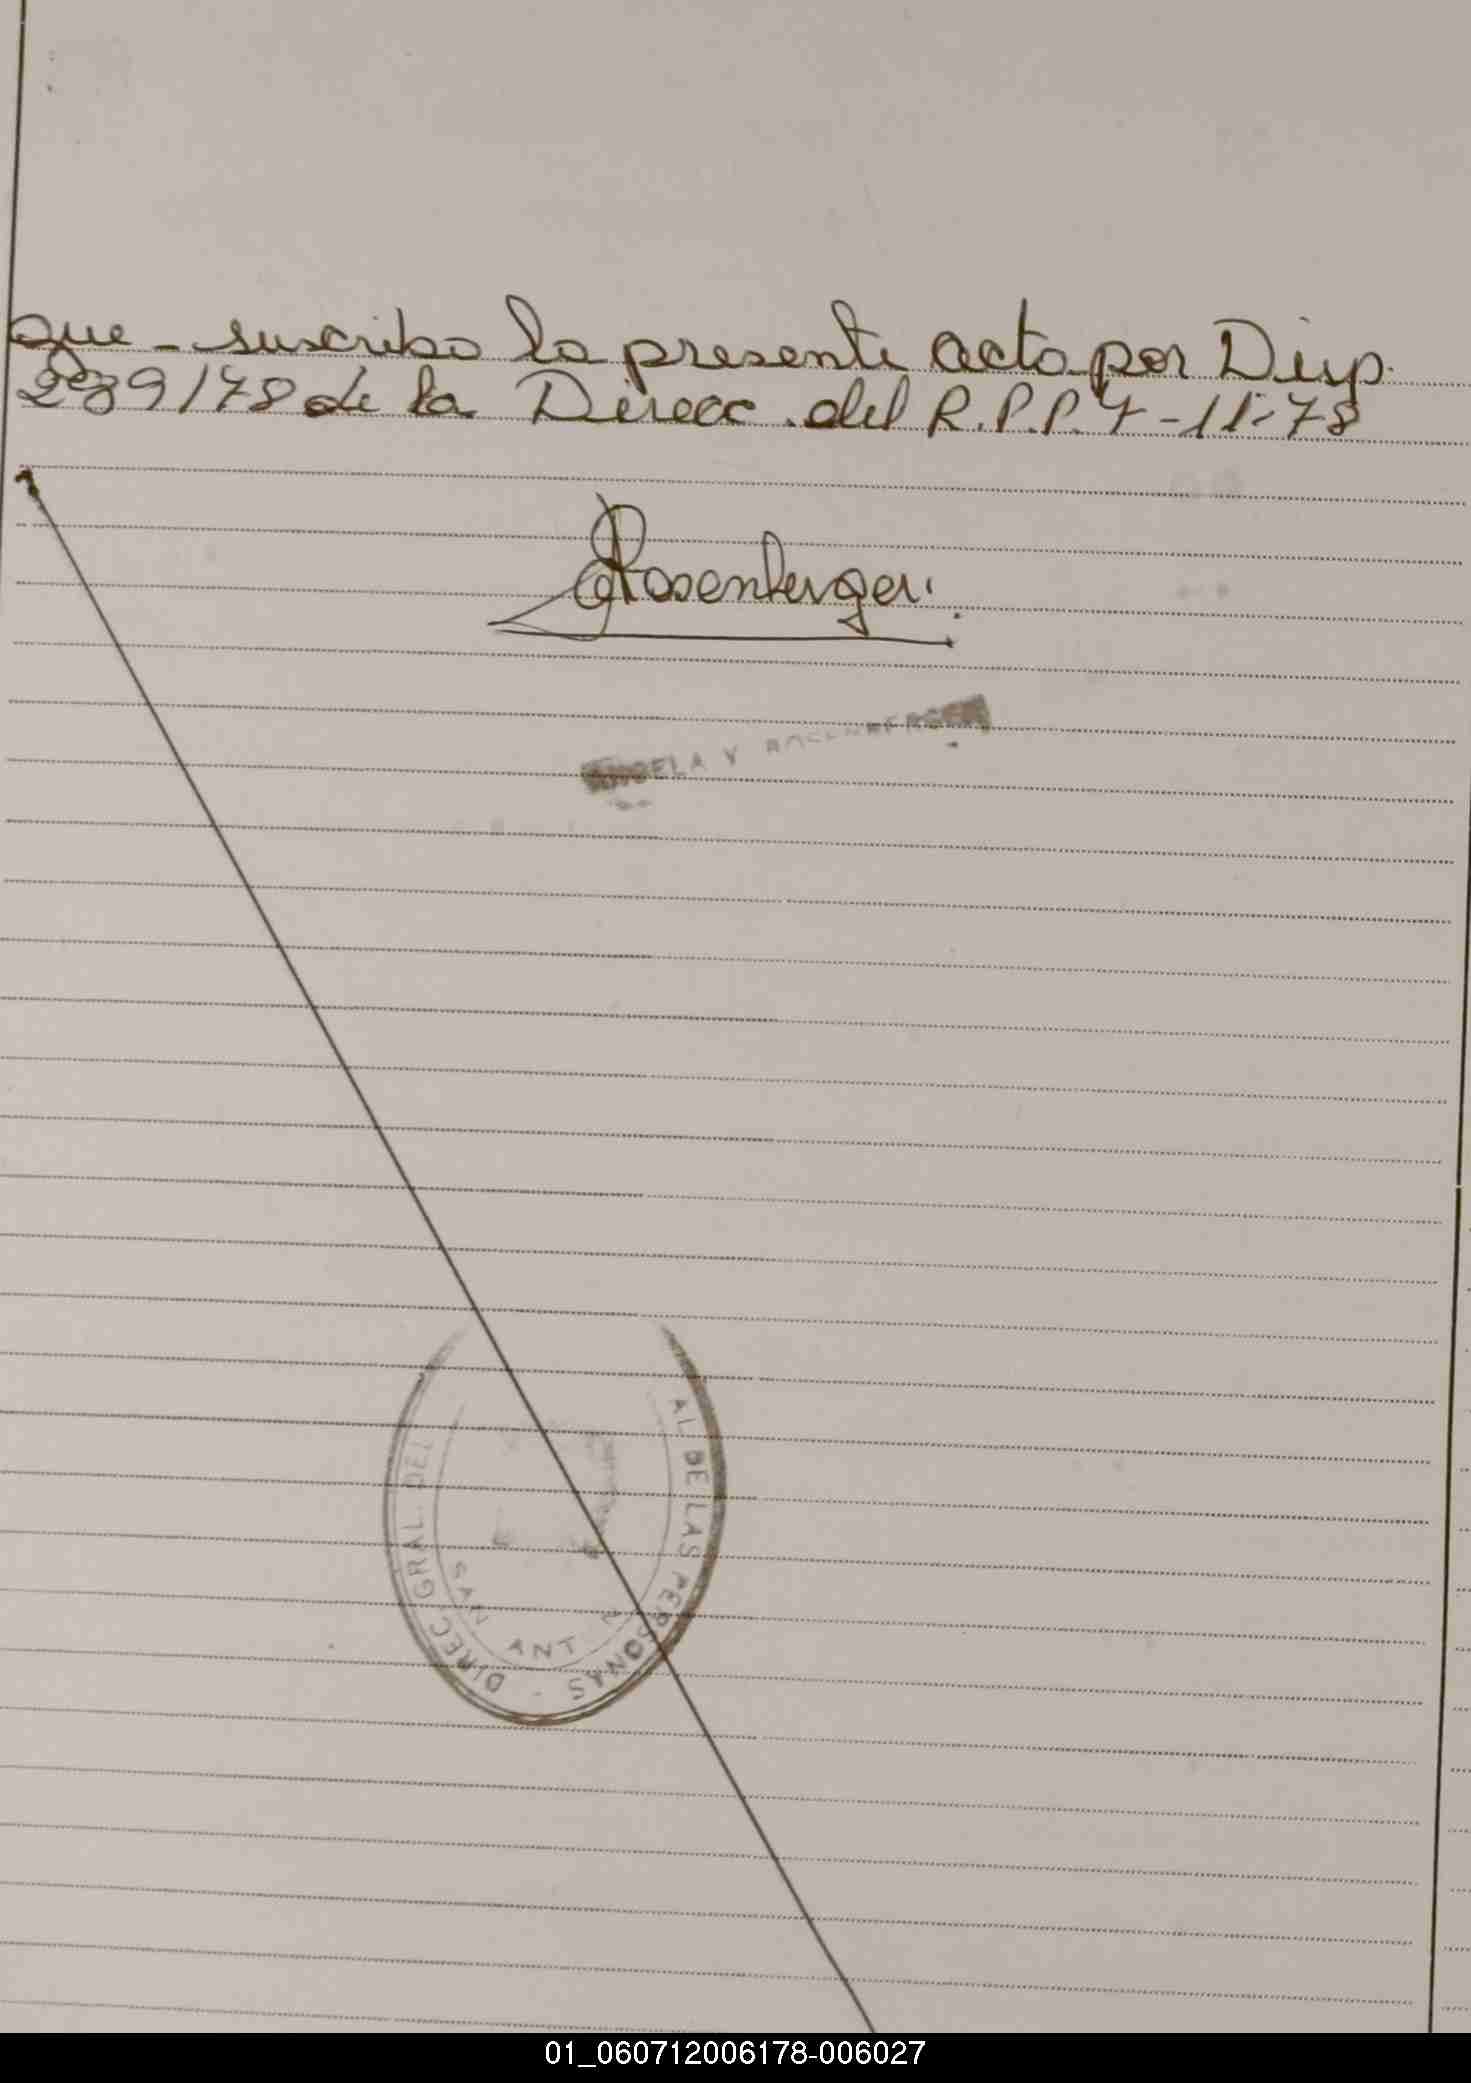 que - suscribo la presente acta por Disp.
239/78 de la Direcc. del R.P.P. 7-11-78
Rosenberger.
ANGELA V ROSENBERGER
DIREC GRAL. DEL AL DE LAS PERSONAS -
SAN ANT.
01_060712006178-006027